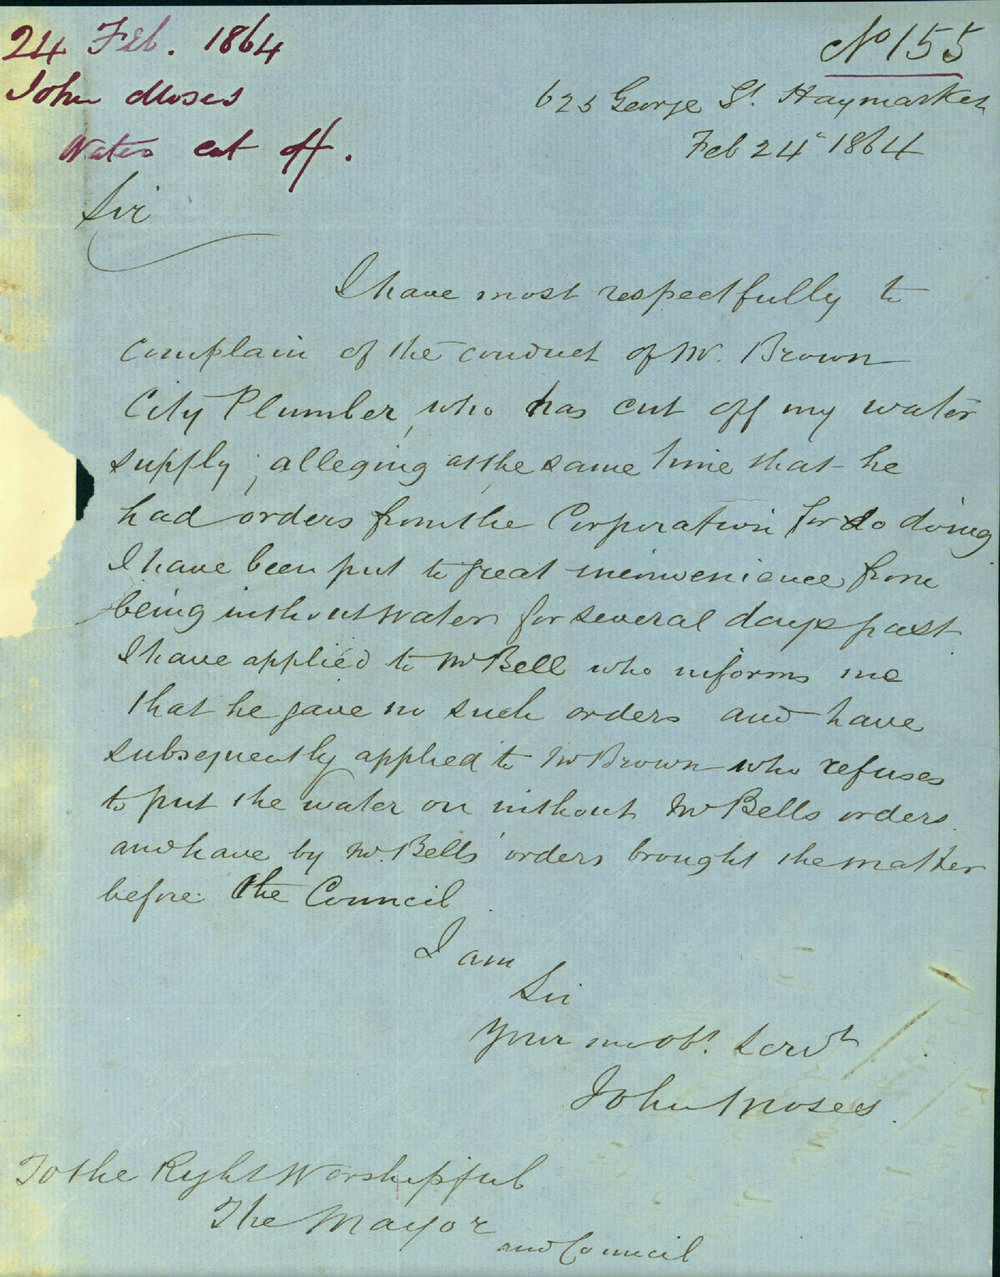 24 Feb. 1864
John Moses
Water cut off.
No 155
625 George St. Haymarket
Feb 24th 1864
Sir
I have most respectfully to
complain of the conduct of Mr. Brown
City Plumber, who has cut off my water
supply; alleging at the same time that he
had orders from the Corporation for so doing
I have been put to great inconvenience from
being without water for several days past
I have applied to Mr Bell who informs me
that he gave no such orders and have
subsequently applied to Mr Brown who refuses
to put the water on without Mr Bells orders.
and have by Mr. Bells' orders brought the matter
before the Council
I am
Sir
Your mo obt. Servt
John Moses
To the Right Worshipful
The Mayor
and Council